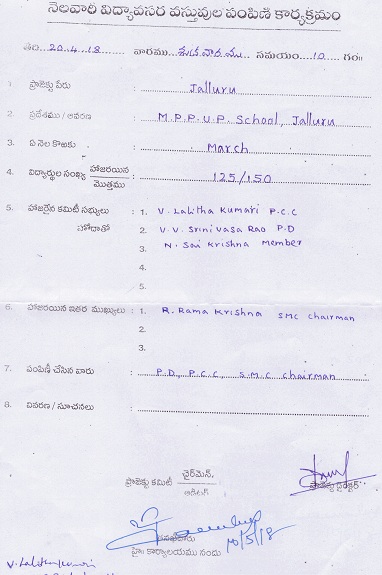 నెలవారి విద్యావసర వస్తువుల పంపిణి కార్యక్రమం
తేది 20.4.18 వారము శుక్రవారము సమయం 10 గం॥
1. ప్రాజెక్టు పేరు : Jalluru
2. ప్రదేశము / ఆవరణ : M.P.P.U.P. School, Jalluru
3. ఏ నెల కొఱకు : March
4. విద్యార్థుల సంఖ్య హాజరయిన / మొత్తము : 125/150
5. హాజరైన కమిటీ సభ్యులు : 1. V. Lalitha Kumari P.C.C
హోదాతో 2. V.V. Srinivasa Rao P.D
3. N. Sai Krishna Member
4.
5.
6. హాజరయిన ఇతర ముఖ్యులు : 1. R. Rama Krishna SMC Chairman
2.
3.
7. పంపిణీ చేసిన వారు : P.D, P.C.C, S.M.C Chairman
8. వివరణ / సూచనలు :
ప్రాజెక్టు కమిటీ ఛైర్మెన్. / ఆడిటర్ ప్రాజెక్టు డైరెక్టర్
హెచ్ కార్యాలయము నందు 10/5/18
V. Lalitha Kumari